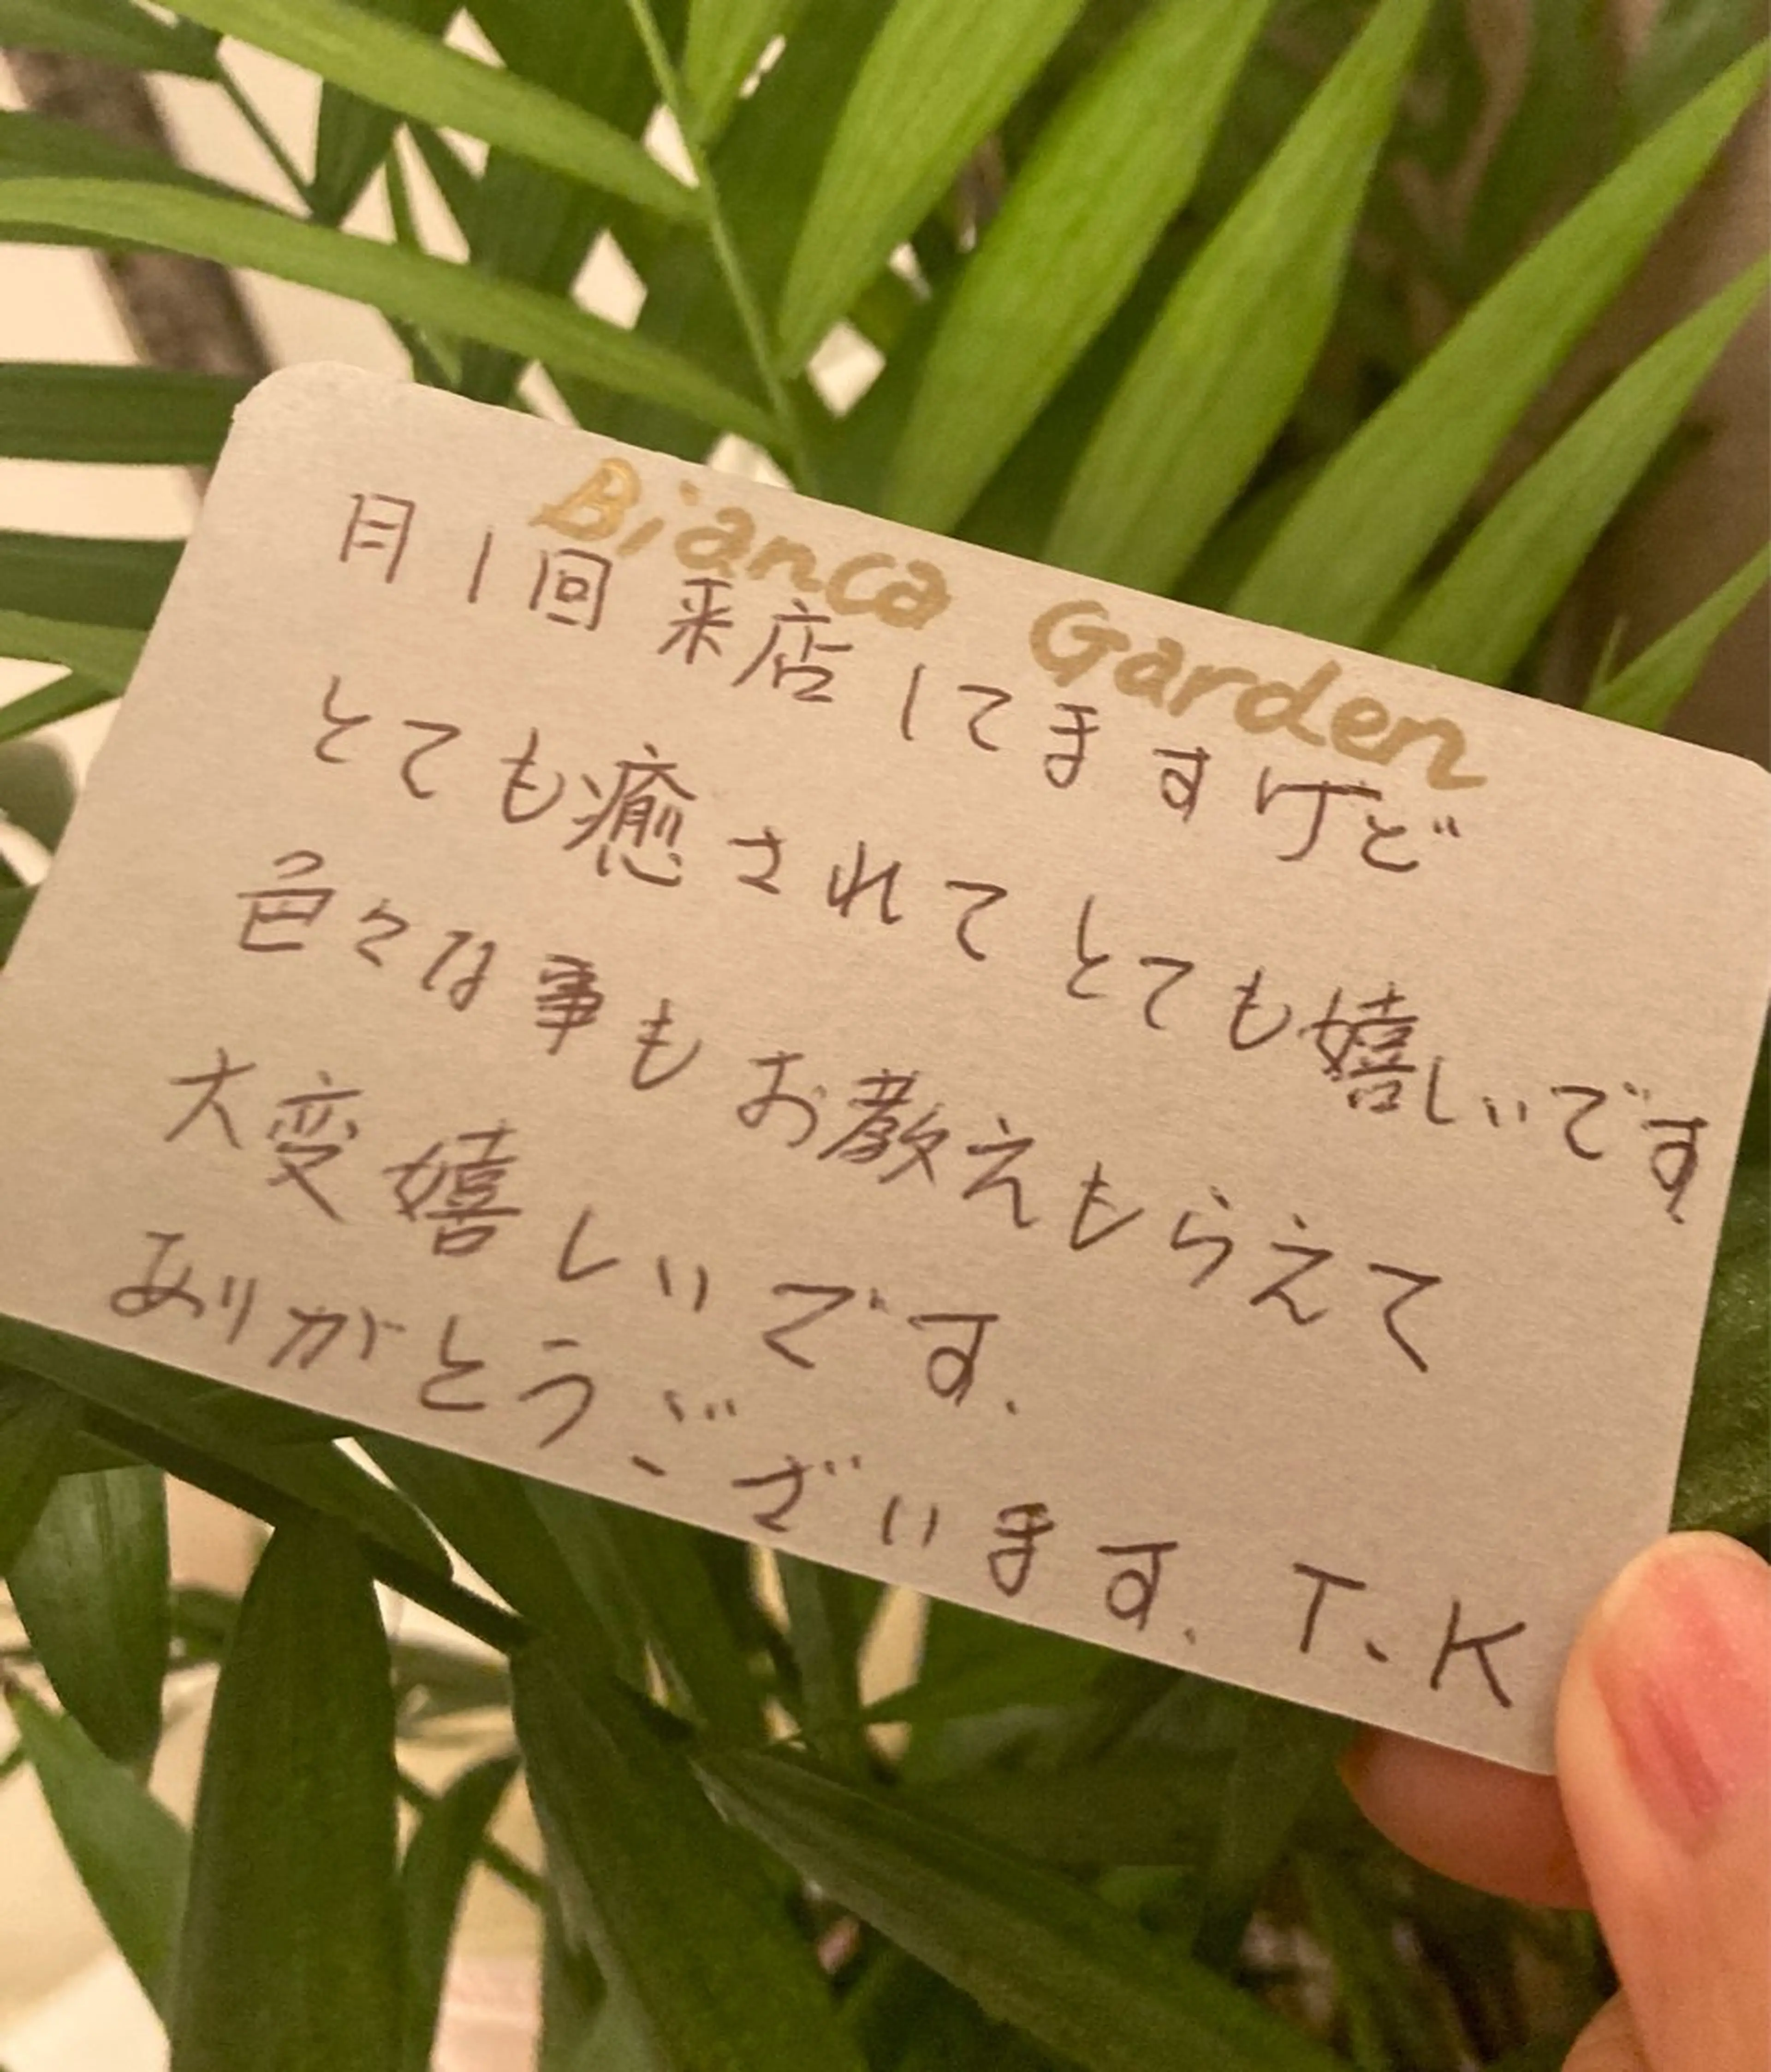 Bianca Garden
月1回来店してますけど
とても癒されてとても嬉しいです.
色々な事もお教えもらえて
大変嬉しいです.
ありがとうございます. T.K